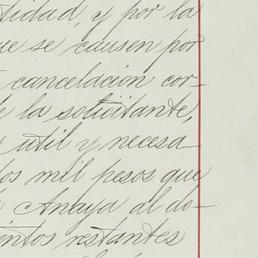 tidad, y por la
que se causen por
cancelación cor-
de la solicitante,
util y necesa
dos mil pesos que
Anaya al do-
cientos restantes